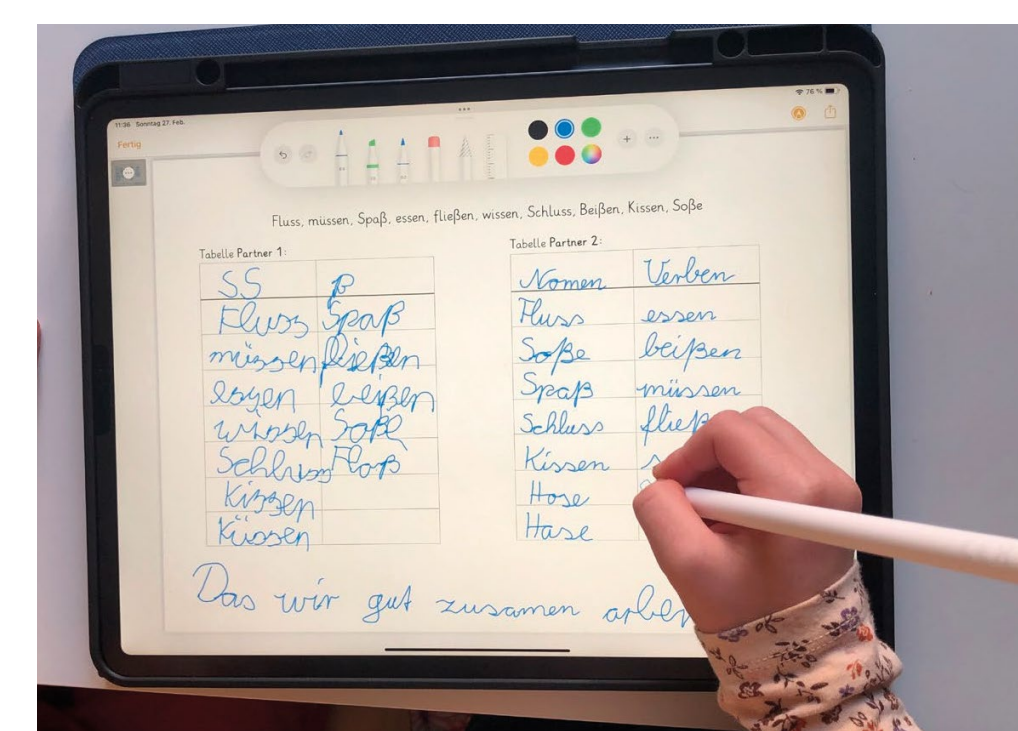 11:36 Sonntag 27. Feb.
76 %
Fertig
Fluss, müssen, Spaß, essen, fließen, wissen, Schluss, Beißen, Kissen, Soße
Tabelle Partner 1:
SS ß
Fluss Spaß
müssen fließen
essen beißen
wissen Soße
Schluss Floß
Kissen
Küssen
Tabelle Partner 2:
Nomen Verben
Fluss essen
Soße beißen
Spaß müssen
Schluss fließ
Kissen
Hose
Hase
Das wir gut zusamen arbei